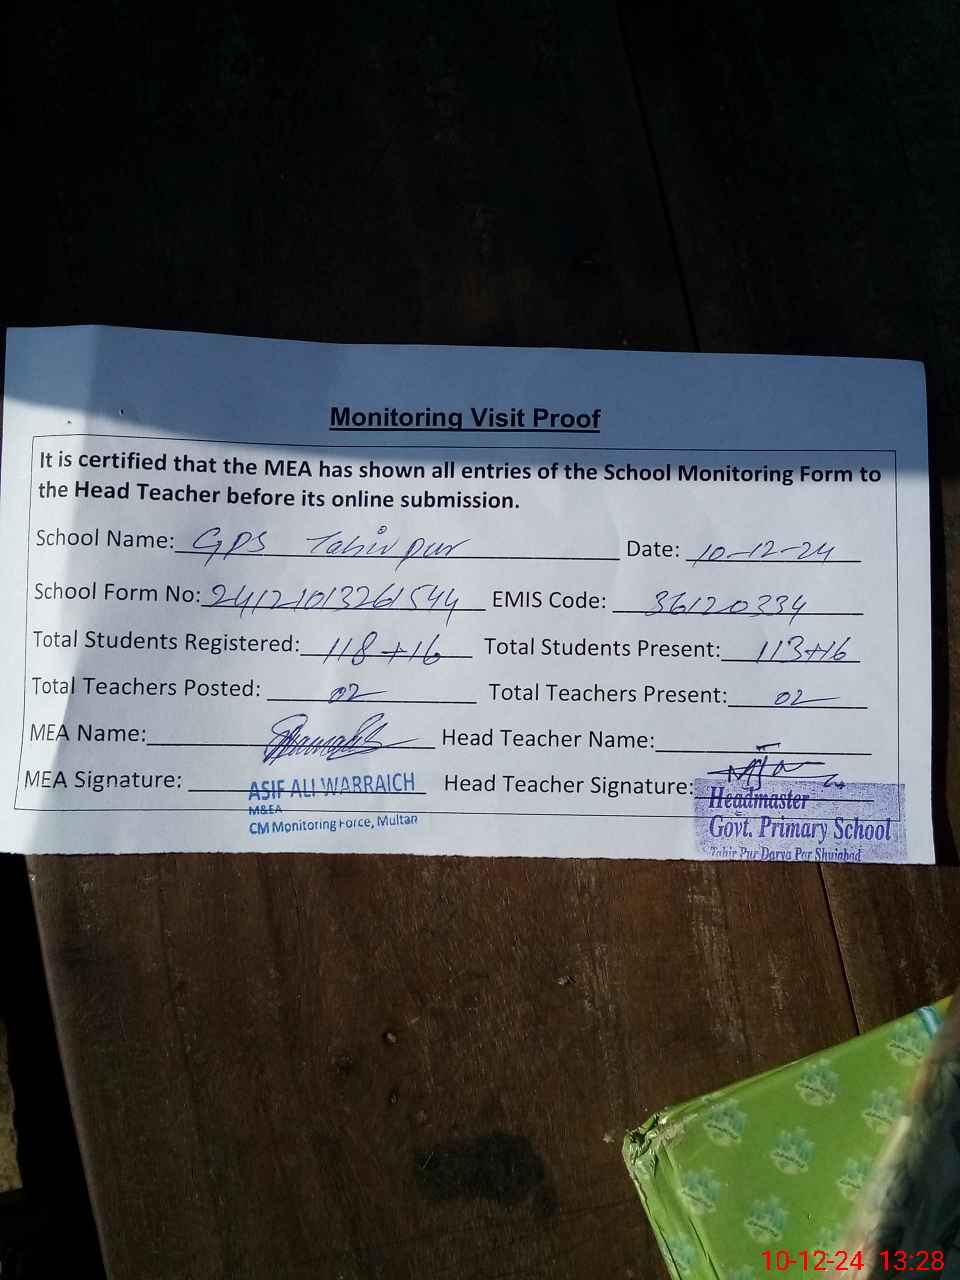 Monitoring Visit Proof
It is certified that the MEA has shown all entries of the School Monitoring Form to
the Head Teacher before its online submission.
School Name: GPS Tahir pur Date: 10-12-24
School Form No: 24121013261544 EMIS Code: 36120334
Total Students Registered: 118+16 Total Students Present: 113+16
Total Teachers Posted: 02 Total Teachers Present: 02
MEA Name: Head Teacher Name:
MEA Signature: Head Teacher Signature:
ASIF ALI WARRAICH
M&EA
CM Monitoring Force, Multan
Headmaster
Govt. Primary School
Tahir Pur Darya Pur Shujabad
10-12-24 13:28